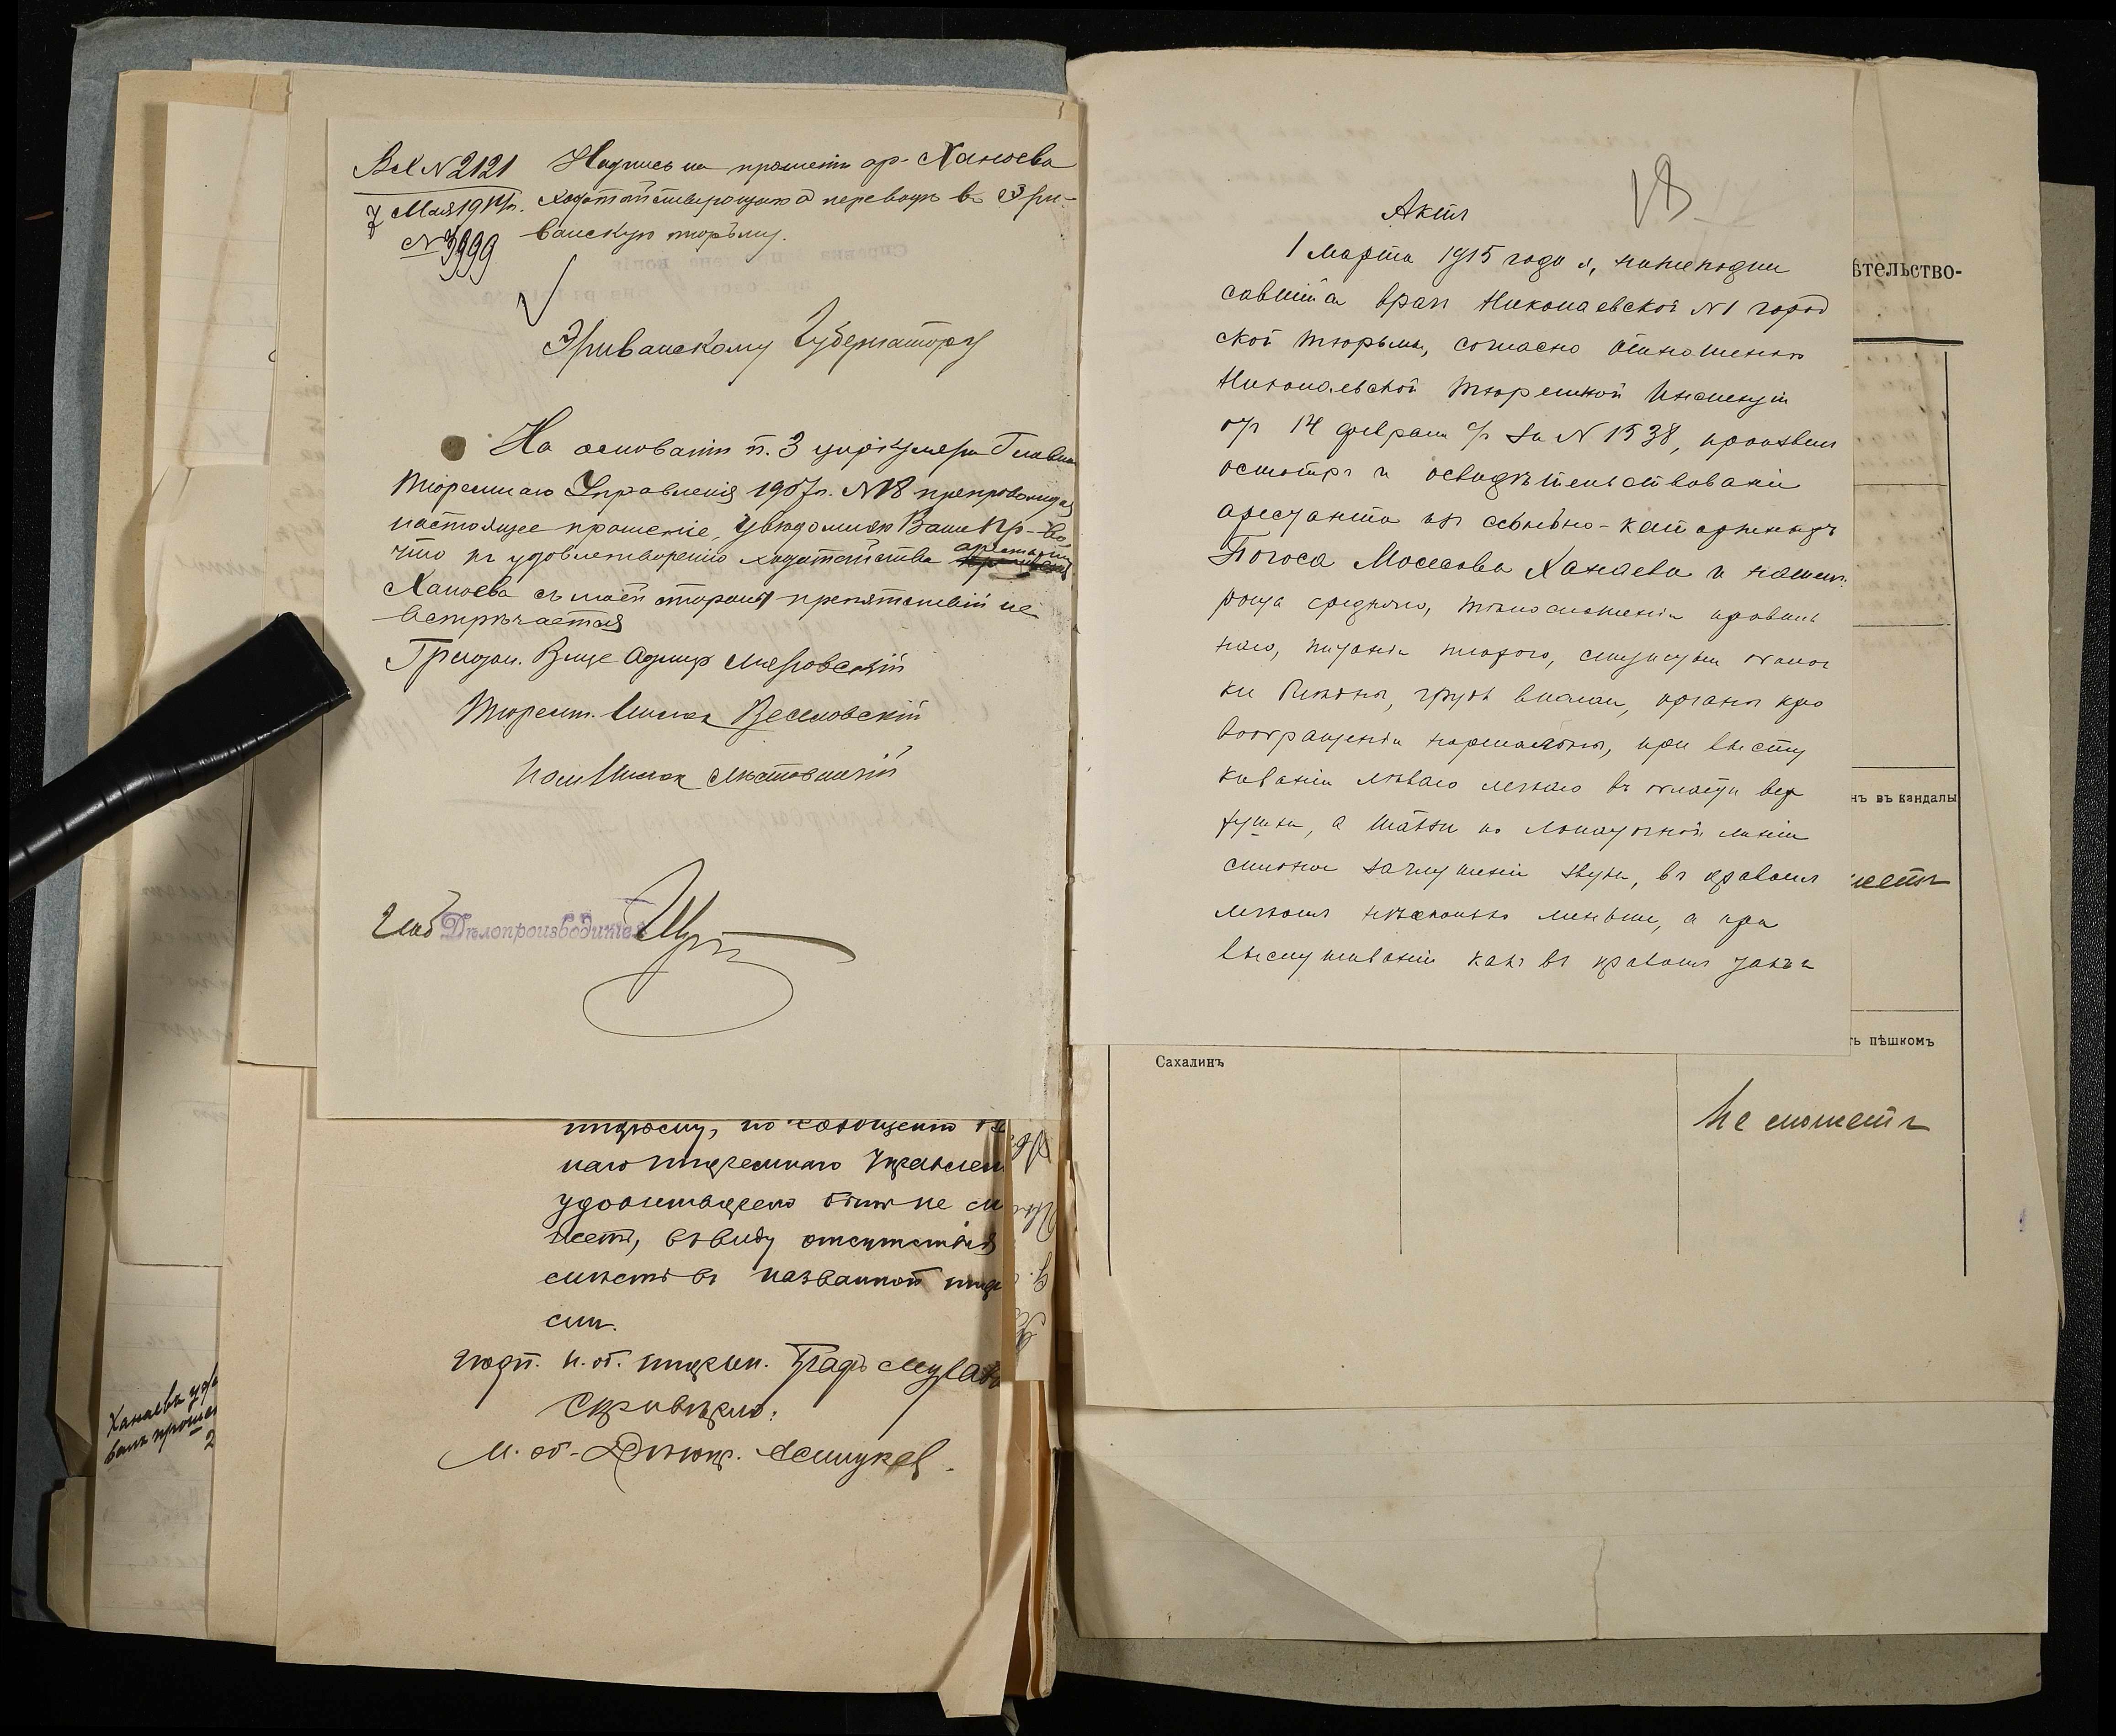 Вх N 2121
7 Мая 191 г.
N 3999
Надпись на прошеніи ар. Ханоева
ходатайствующаго о переводѣ въ Эри-
ванскую тюрьму.
Эриванскому Губернатору
На основаніи п. 3 циркуляра Главна
Тюремнаго Управленія 1907 г. N 18 препровождая
настоящее прошеніе, увѣдомляю Ваше Пр-во,
что къ удовлетворенію ходатайства арестанта
Ханоева съ моей стороны препятствій не
встрѣчается
Градон. Вице Адмир
Тюремн. Инспек
Пом Инспек
Дѣлопроизводитель
тюрьму, по сообщенію
наго тюремнаго Управлен
удовлетворено быть не м
жетъ, въ виду отсутствія
мѣстъ въ названной тюр
мы.
подп. И. об. тюрьм.
Скрѣпилъ:
И. об.
Ханаевъ
валъ проше
2
18
Актъ
1 Марта 1915 года я, нижеподпи
савшійся врач Николаевской N 1 город
ской тюрьмы, согласно отношенію
Николаевской Тюремной Инспекціи
отъ 14 февраля с/г за N 1538, произвелъ
осмотръ и освидѣтельствованіе
арестанта изъ ссыльно-каторжныхъ
Погоса Мосесова Ханаева и нашелъ:
роста средняго, тѣлосложенія правиль
наго, питанія плохого, слизистыя оболоч
ки блѣдны, грудь впалая, органы кро
вообращенія нормальны, при высту
киваніи лѣваго легкаго въ области вер
хушки, а также по лопаточной линіи
сильное заглушеніе звука, въ правомъ
легкомъ нѣсколько меньше, а при
выслушиваніи какъ въ правомъ такъ и
ѣтельство-
нъ въ кандалы
ть пѣшкомъ
Сахалинъ
Не можетъ